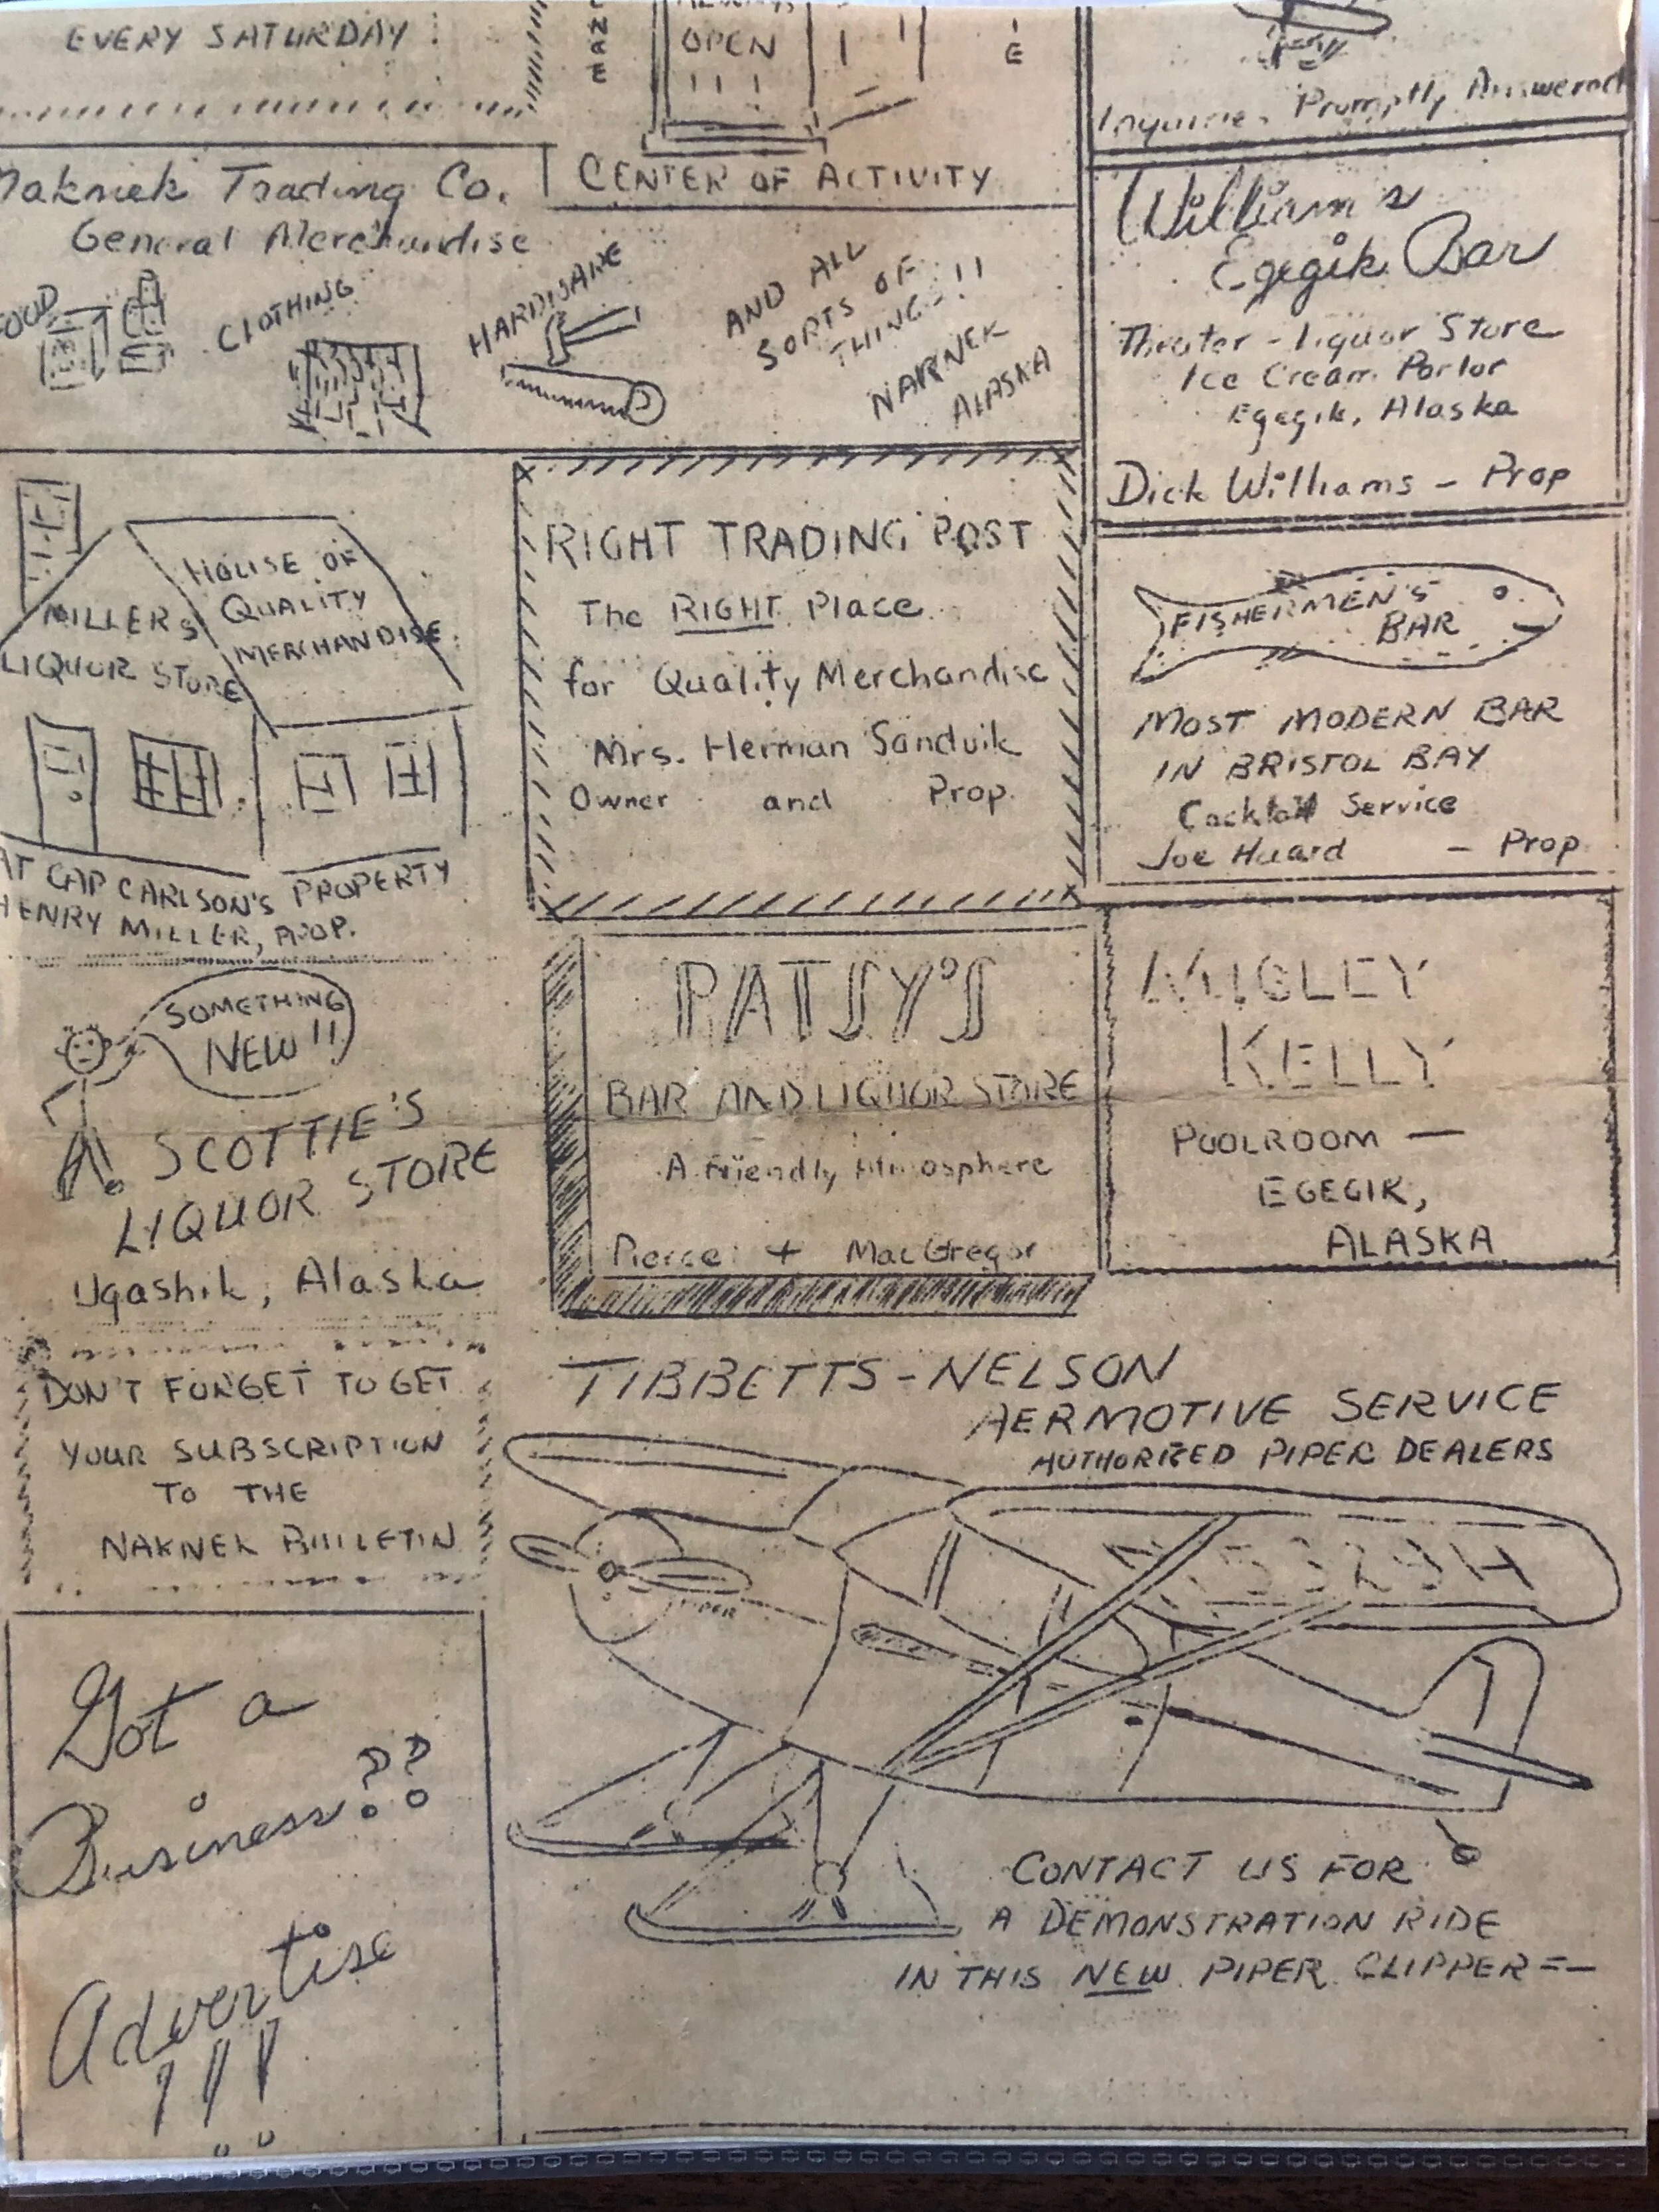 EVERY SATURDAY !
OPEN
! ! !
CENTER OF ACTIVITY
Inquiries Promptly Answered
Naknek Trading Co.
General Merchandise
FOOD
CLOTHING
HARDWARE
AND ALL
SORTS OF
THINGS !!
NAKNEK
ALASKA
William's
Egegik Bar
Theater - Liquor Store
Ice Cream Parlor
Egegik, Alaska
Dick Williams - Prop
MILLERS
LIQUOR STORE
HOUSE OF
QUALITY
MERCHANDISE
AT CAP CARLSON'S PROPERTY
HENRY MILLER, PROP.
RIGHT TRADING POST
The RIGHT Place
for Quality Merchandise
Mrs. Herman Sandvik
Owner and Prop.
FISHERMEN'S
BAR
MOST MODERN BAR
IN BRISTOL BAY
Cocktail Service
Joe Huard - Prop
SOMETHING
NEW !!
SCOTTIE'S
LIQUOR STORE
Ugashik, Alaska
PATSY'S
BAR AND LIQUOR STORE
A Friendly Atmosphere
Pierce + MacGregor
KELLY
POOLROOM —
EGEGIK,
ALASKA
DON'T FORGET TO GET
YOUR SUBSCRIPTION
TO THE
NAKNEK BULLETIN
Got a
Business??
Advertise
!!!
TIBBETTS-NELSON
AERMOTIVE SERVICE
AUTHORIZED PIPER DEALERS
PIPER
CONTACT US FOR
A DEMONSTRATION RIDE
IN THIS NEW PIPER CLIPPER =-